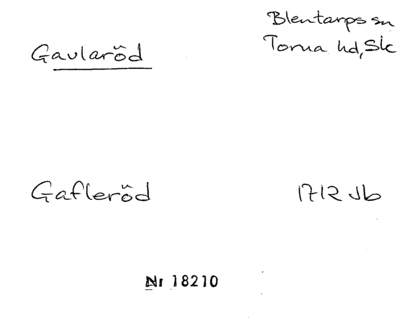 Blentarps sn
Gavlaröd
Torna hd, Sk
Gafleröd 1712 Jb
Nr 18210